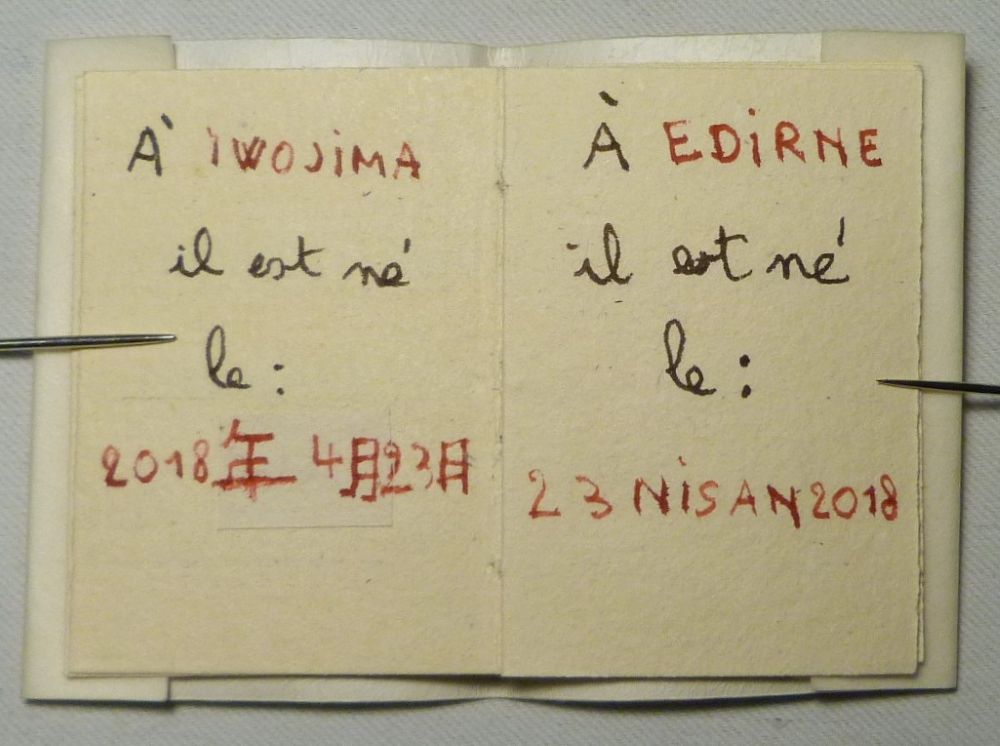 À IWOJIMA
il est né
le :
2018年 4月23日
À EDİRNE
il est né
le :
23 NİSAN 2018